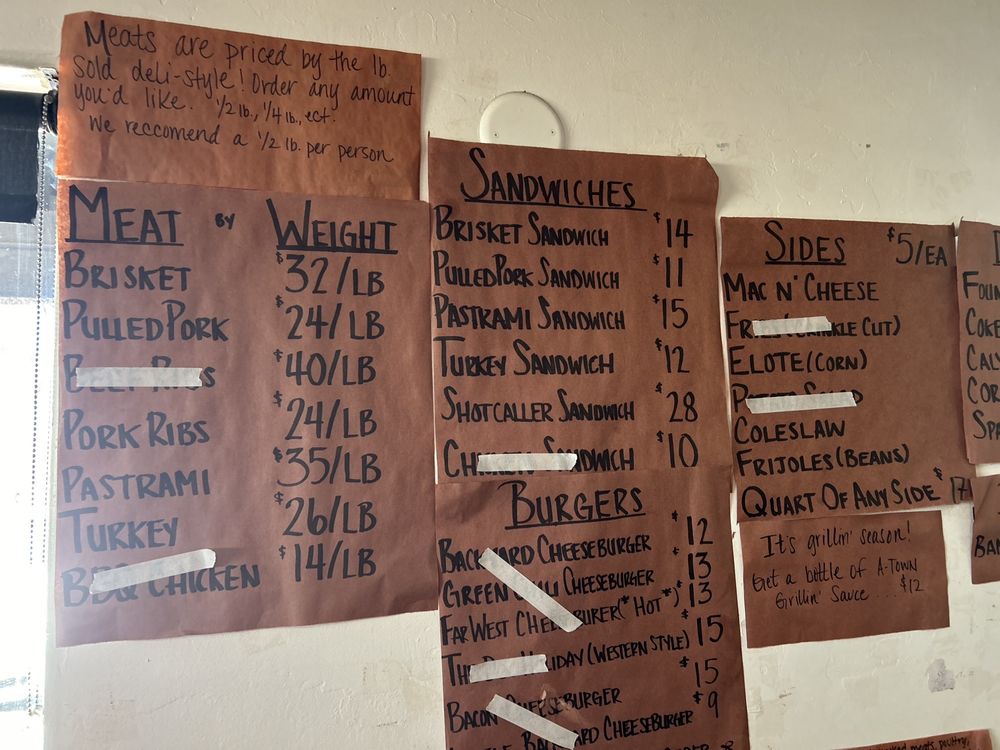 Meats are priced by the lb.
Sold deli-style! Order any amount
you'd like. 1/2 lb., 1/4 lb., ect.
We reccomend a 1/2 lb. per person
MEAT BY WEIGHT
BRISKET $32/LB
PULLED PORK $24/LB
BEEF RIBS $40/LB
PORK RIBS $24/LB
PASTRAMI $35/LB
TURKEY $26/LB
BBQ CHICKEN $14/LB
SANDWICHES
BRISKET SANDWICH $14
PULLED PORK SANDWICH $11
PASTRAMI SANDWICH $15
TURKEY SANDWICH $12
SHOTCALLER SANDWICH $28
CHICKEN SANDWICH $10
BURGERS
BACKYARD CHEESEBURGER $12
GREEN CHILI CHEESEBURGER $13
FAR WEST (*HOT*) $13
(WESTERN STYLE) $15
BACON CHEESEBURGER $15
BACKYARD CHEESEBURGER $9
SIDES $5/EA
MAC N' CHEESE
FRIES (CRINKLE CUT)
ELOTE (CORN)
COLESLAW
FRIJOLES (BEANS)
QUART OF ANY SIDE $17
It's grillin' season!
Get a bottle of A-TOWN
Grillin' Sauce... $12